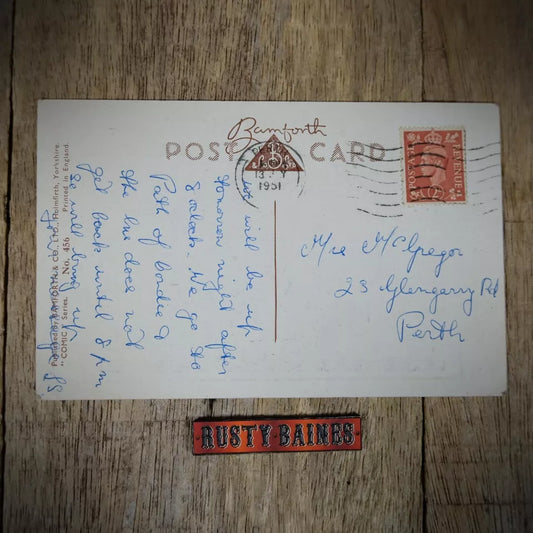 Bamforth
POST CARD
PERTH
13
1951
POSTAGE
REVENUE
we will be up
tomorrow night after
8 o'clock. We go to
Path of Condie &
the bus does not
get back until 8 pm
so will bring up
Mrs McGregor
23 Glengarry Rd
Perth
Published by BAMFORTH & CO., LTD., Holmfirth, Yorkshire.
"COMIC" Series. No. 456 Printed in England.
RUSTY·BAINES